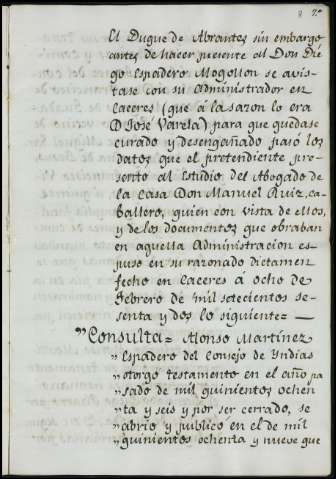 8 7º
El Duque de Abrantes sin embargo
antes de hacer presente al Don Die
go Espadero Mogollon se avis-
tase con su Administrador en
Caceres (que á la sazon lo era
D José Varela) para que quedase
curado y desengañado pasó los
datos que el pretendiente pre-
sento al Estudio del Abogado de
la Casa Don Manuel Ruiz, ca-
ballero, quien con vista de ellos,
y de los documentos que obraban
en aquella Administracion es-
puso en su razonado dictamen
fecho en Caceres á ocho de
Febrero de mil setecientos se-
senta y dos lo siguiente=
"Consulta= Alonso Martinez
"Espadero del Consejo de Yndias
"otorgo testamento en el año pa
"sado de mil quinientos ochen
"ta y seis y por ser cerrado, se
"abrio y publico en el de mil
"quinientos ochenta y nueve que